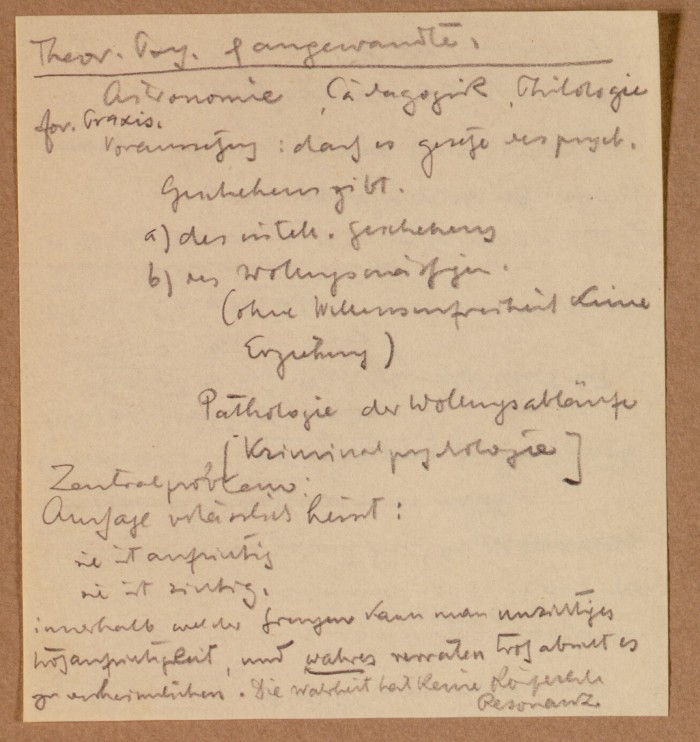 Theor. Psy. & angewandte.
Astronomie, Pädagogik, Philologie
for. Praxis.
Voraussetzung : dass es Gesetze des psych.
Geschehens gibt.
a) des intell. Geschehens
b) des Wollungsmässigen.
(ohne Willensunfreiheit keine
Erziehung)
Pathologie der Wollungsabläufe
[Kriminalpsychologie]
Zentralproblem:
Aussage verlässlich heisst:
sie ist aufrichtig
sie ist richtig.
innerhalb welcher Grenzen kann man unrichtiges
trotz Aufrichtigkeit, und wahres verraten trotz Absicht es
zu verheimlichen. Die Wahrheit hat keine körperliche
Resonanz